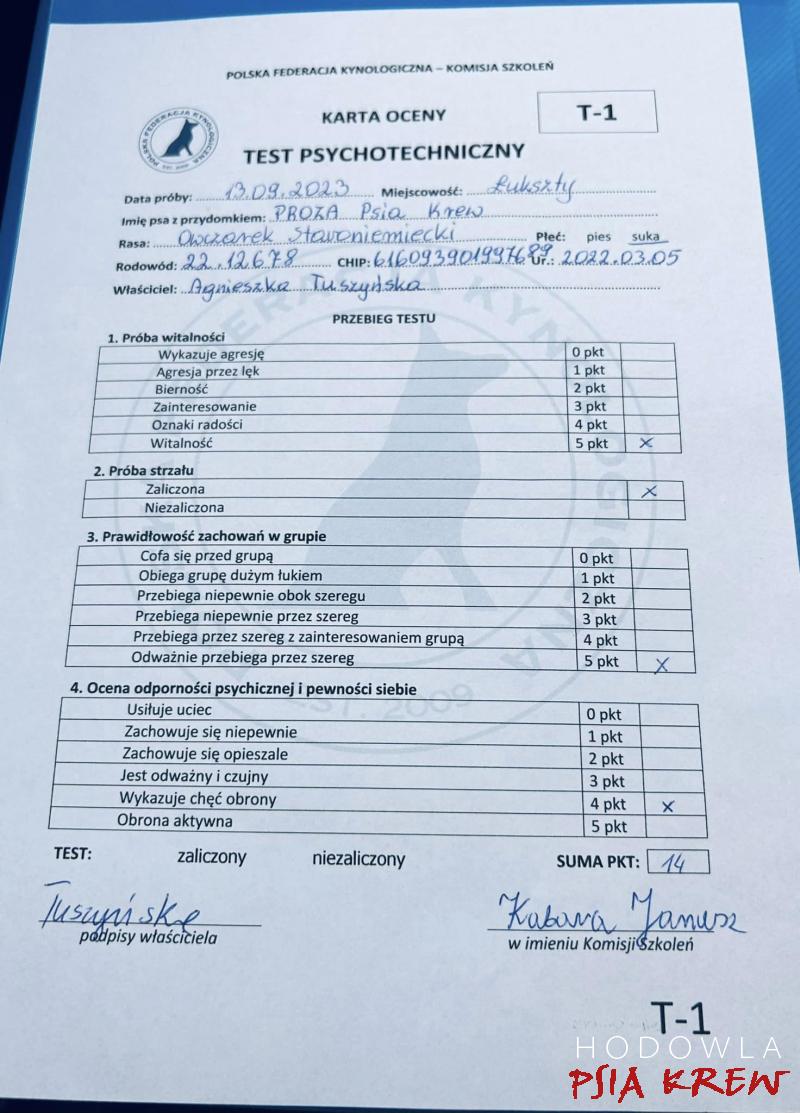 POLSKA FEDERACJA KYNOLOGICZNA – KOMISJA SZKOLEŃ
KARTA OCENY
T-1
POLSKA FEDERACJA KYNOLOGICZNA
TEST PSYCHOTECHNICZNY
Data próby: 13.09.2023 Miejscowość: Łukszty
Imię psa z przydomkiem: PROZA Psia Krew
Rasa: Owczarek Staroniemiecki Płeć: pies suka
Rodowód: 22.12678 CHIP: 616093901997689 Ur.: 2022.03.05
Właściciel: Agnieszka Tuszyńska
PRZEBIEG TESTU
1. Próba witalności
Wykazuje agresję 0 pkt
Agresja przez lęk 1 pkt
Bierność 2 pkt
Zainteresowanie 3 pkt
Oznaki radości 4 pkt
Witalność 5 pkt X
2. Próba strzału
Zaliczona X
Niezaliczona
3. Prawidłowość zachowań w grupie
Cofa się przed grupą 0 pkt
Obiega grupę dużym łukiem 1 pkt
Przebiega niepewnie obok szeregu 2 pkt
Przebiega niepewnie przez szereg 3 pkt
Przebiega przez szereg z zainteresowaniem grupą 4 pkt
Odważnie przebiega przez szereg 5 pkt X
4. Ocena odporności psychicznej i pewności siebie
EST. 2009
Usiłuje uciec 0 pkt
Zachowuje się niepewnie 1 pkt
Zachowuje się opieszale 2 pkt
Jest odważny i czujny 3 pkt
Wykazuje chęć obrony 4 pkt X
Obrona aktywna 5 pkt
TEST: zaliczony niezaliczony SUMA PKT: 14
Tuszyńska Kabara Janusz
podpisy właściciela w imieniu Komisji Szkoleń
T-1
HODOWLA
PSIA KREW